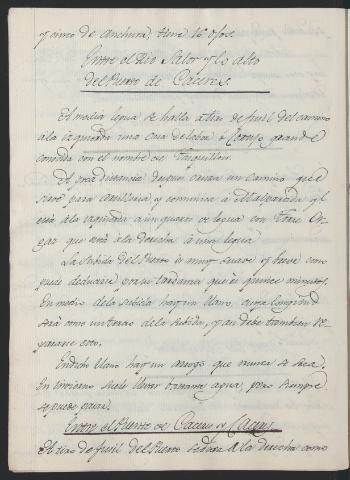 y cinco de anchura, tiene 16 ojos.
Entre el Rio Salor y lo alto
del Puerto de Caceres.
A media legua se halla a tiro de fusil del camino
a la izquierda una Casa de labor o Cortijo grande
conocida con el nombre de
A poca distancia despues cruza un camino que
sirve para cavalleria y comunica a Malpartida y
esta a la izquierda a un quarto de legua con Torre Or-
gaz que está a la derecha a una legua.
La subida del Puerto es muy suave y breve como
puede deducirse por su tardanza que es quince minutos.
En medio de la subida hay un llano, cuya longitud
será como un tercio de la subida, y an debe tambien re-
pararse esto.
En dicho llano hay un arroyo que nunca se seca.
En Invierno suele llevar bastante agua, pero siempre
se puede pasar.
Entre el Puerto de Caceres y Caceres.
A tiro de fusil del Puerto se dexa a la derecha como